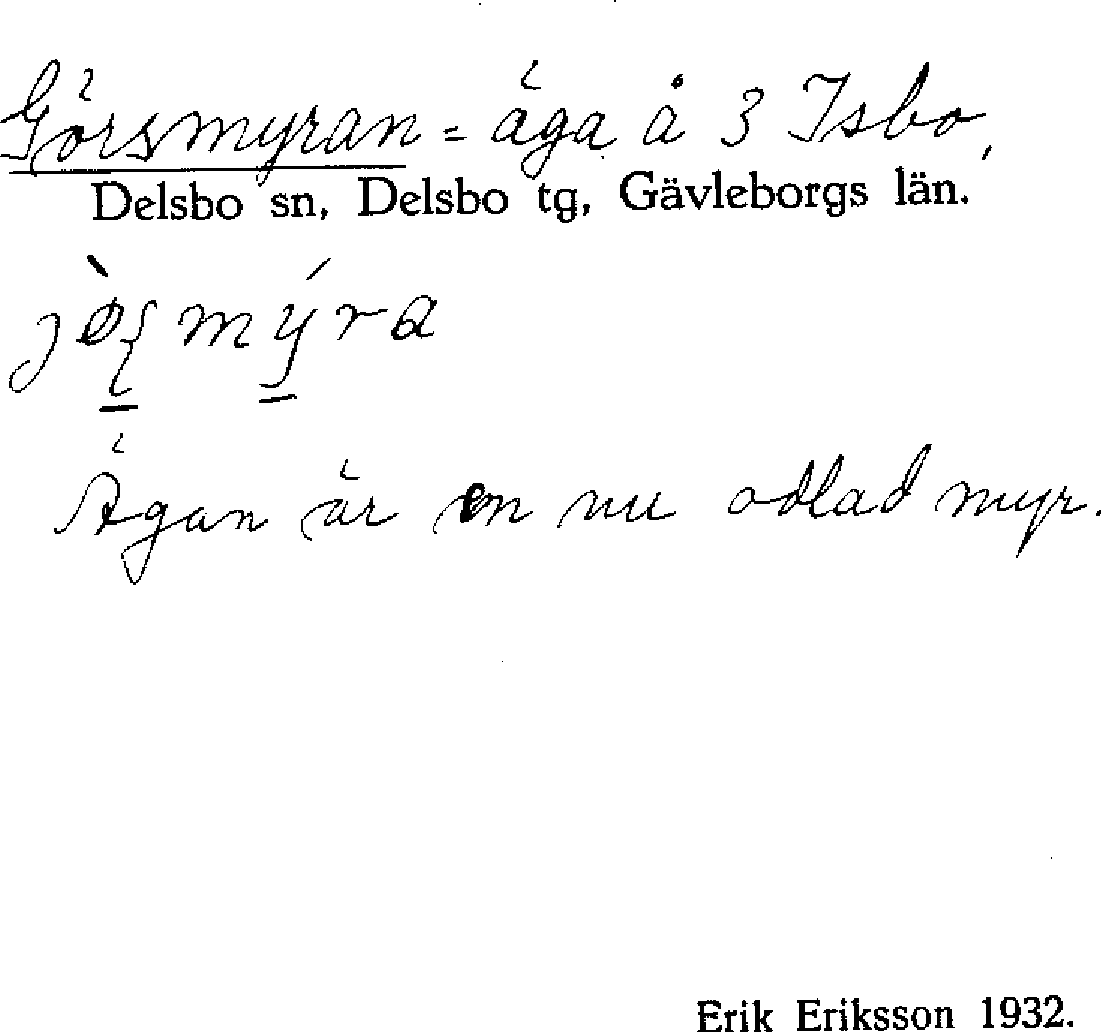 Görsmyran = äga å 3 Isbo,
Delsbo sn, Delsbo tg, Gävleborgs län.
Ägan är en nu odlad myr.
Erik Eriksson 1932.